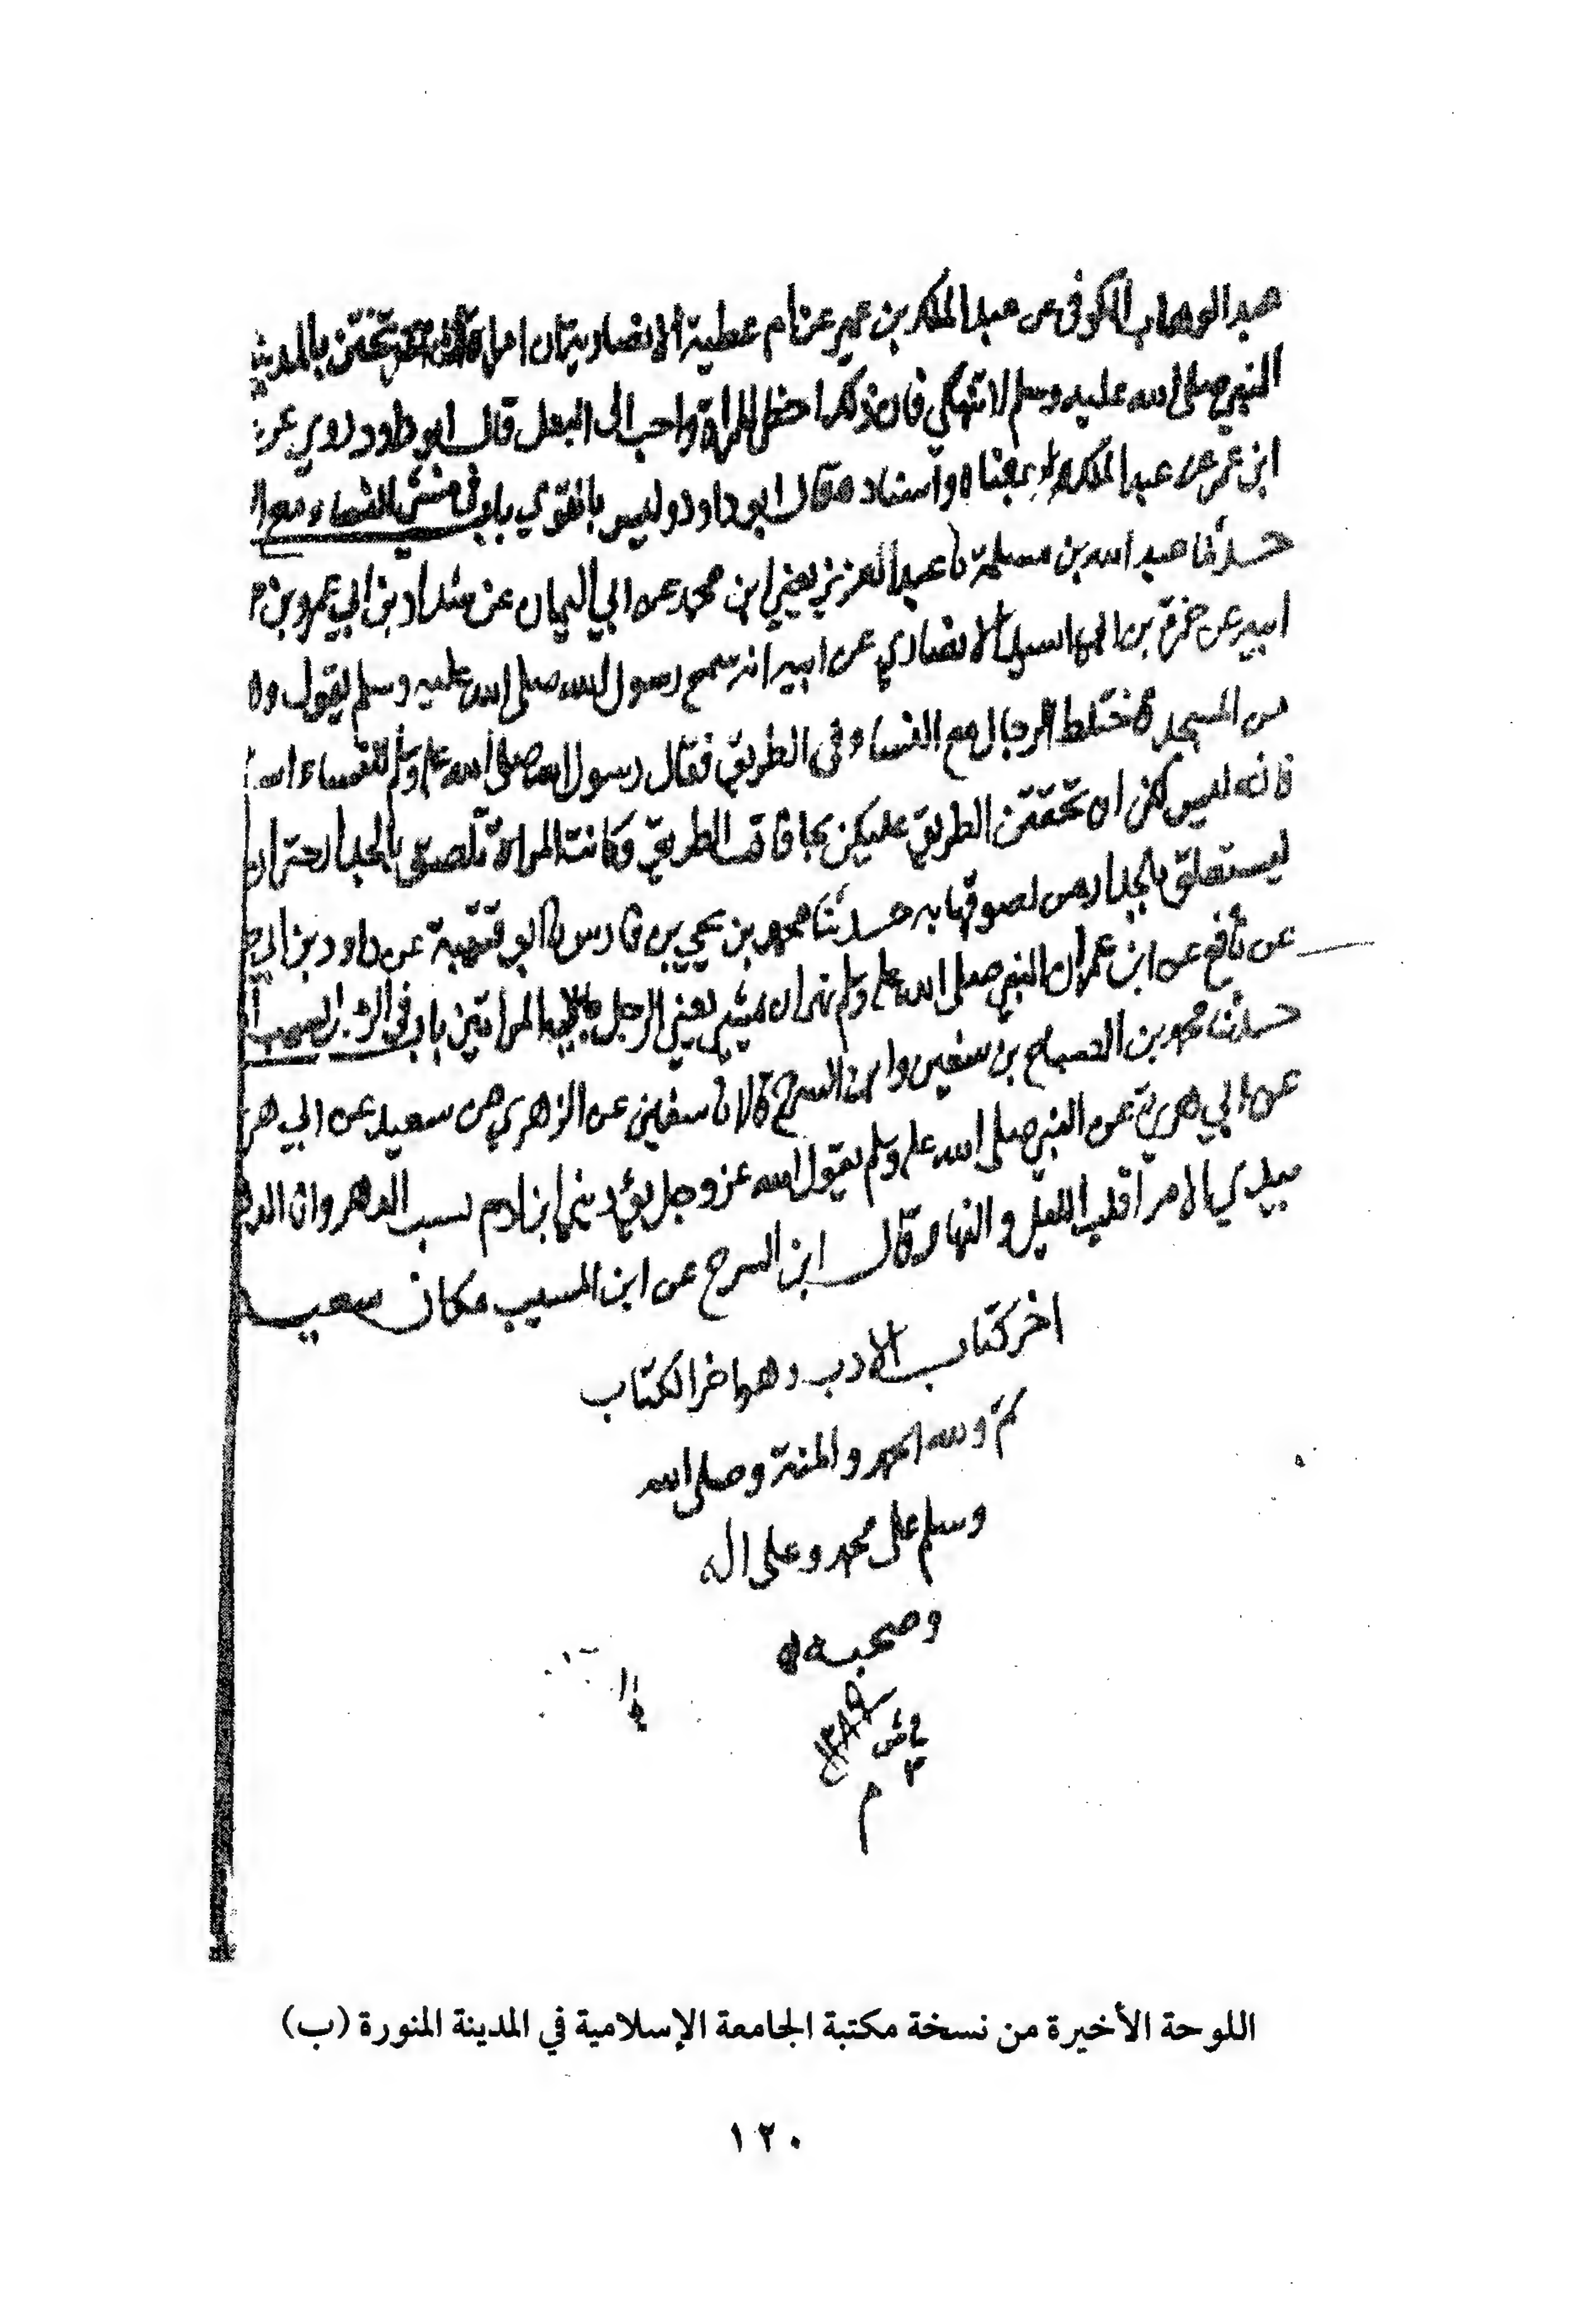 عبد الوهاب الكوفي عن عبد الملك بن عمير عن ام عطية الانصارية ان امراة كانت تختن بالمدينة
النبي صلى الله عليه وسلم لا تنهكي فان ذلك احظى للمراة واحب الى البعل قال ابو داود روي عن
ابن عمر عن عبد الملك بمعناه واسناده قال ابو داود وليس بالقوي باب في مشي النساء مع ا
حدثنا عبد الله بن مسلمة نا عبد العزيز يعني ابن محمد عن ابي اليمان عن شداد بن ابي عمرو بن
ابيه عن حمزة بن ابي اسيد الانصاري عن ابيه انه سمع رسول الله صلى الله عليه وسلم يقول و
من المسجد فاختلط الرجال مع النساء في الطريق فقال رسول الله صلى الله عليه وسلم للنساء ا
فانه ليس لكن ان تحققن الطريق عليكن بحافات الطريق فكانت المراة تلصق بالجدار حتى ان
ليستعلق بالجدار من لصوقها به حدثنا محمد بن يحيى بن فارس نا ابو قتيبة عن داود بن ابي
عن نافع عن ابن عمر ان النبي صلى الله عليه وسلم نهى ان يمشي يعني الرجل بين المراتين باب في الرجل يسب ا
حدثنا محمد بن الصباح بن سفين وابن السرح قالا نا سفين عن الزهري عن سعيد عن ابي هر
عن ابي هريرة عن النبي صلى الله عليه وسلم يقول الله عز وجل يؤذيني ابن ادم يسب الدهر وانا الدهر
بيدي الامر اقلب الليل والنهار وقال ابن السرح عن ابن المسيب مكان سعيد
اخر كتاب الادب وهو اخر الكتاب
تم ولله الحمد والمنة وصلى الله
وسلم على محمد وعلى اله
وصحبه
م
اللوحة الأخيرة من نسخة مكتبة الجامعة الإسلامية في المدينة المنورة (ب)
١٢٠